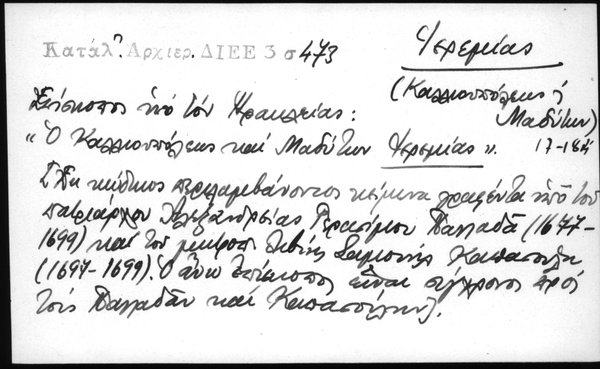 Κατάλ. Ἀρχιερ. ΔΙΕΕ 3 σ 473
Ἱερεμίας
(Καλλιουπόλεως ἡ
Μαδύτων)
Ἐπίσκοπος ὑπό τόν Ἡρακλείας:
17-18ος
"Ὁ Καλλιουπόλεως καί Μαδύτων Ἱερεμίας".
κώδικος περιλαμβάνοντος κείμενα γραφέντα ὑπό τοῦ
πατριάρχου Ἀλεξανδρείας Γερασίμου Παλλαδᾶ (1677-
1699) καί τοῦ μητροπ. Σαμουήλ Καπασούλη
(1697-1699). Ὁ ἄνω ἐπίσκοπος εἶναι σύγχρονος πρός
τούς Παλλαδᾶν καί Καπασούλην.